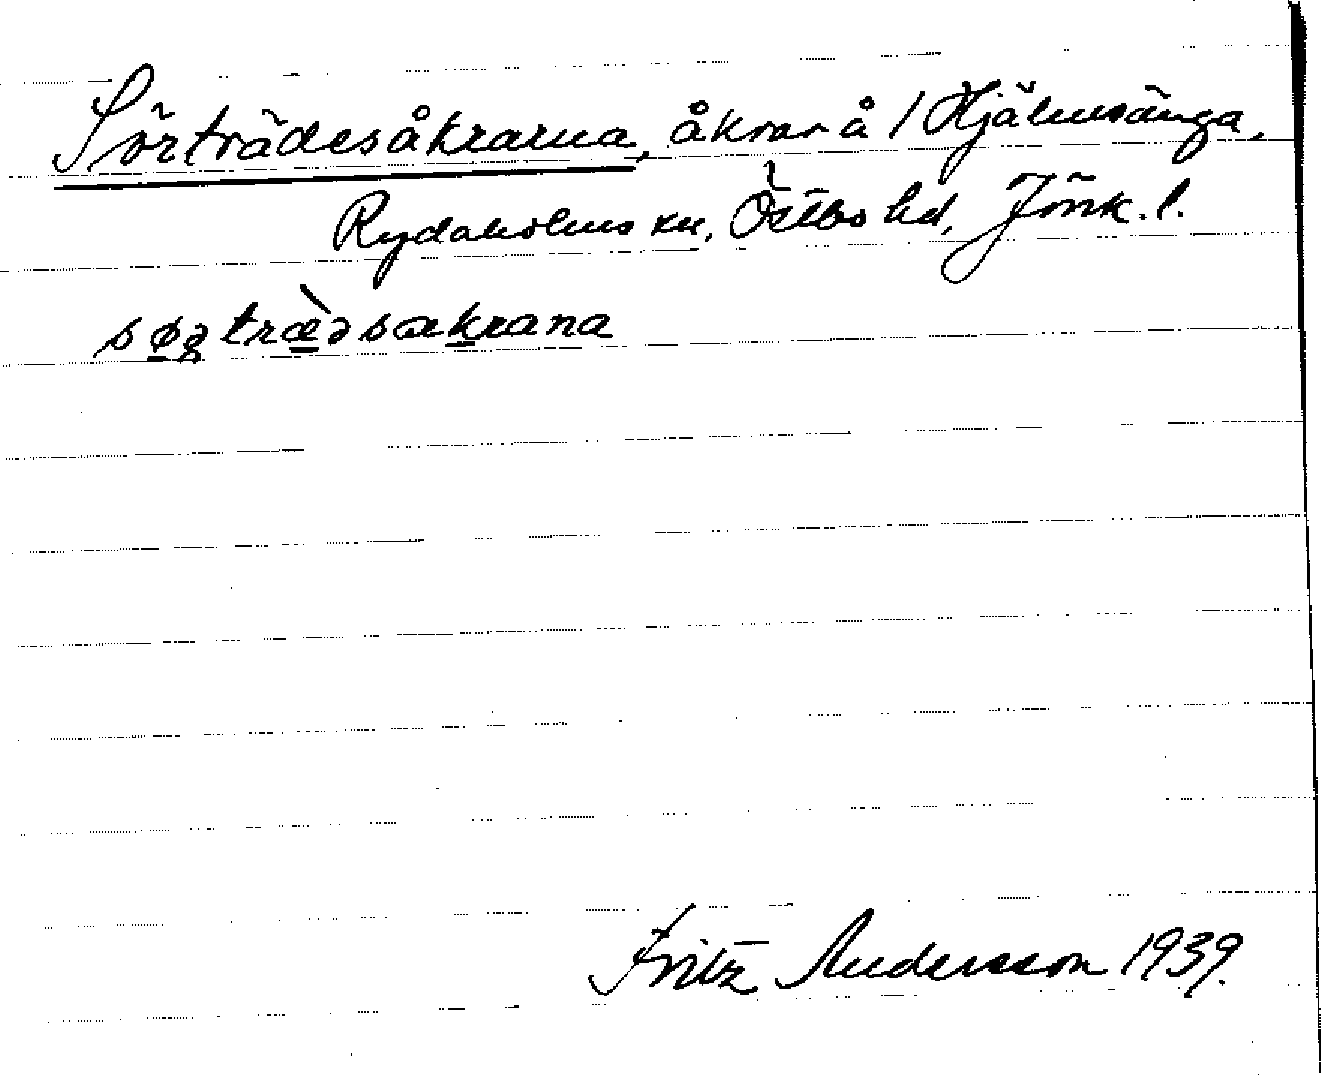 Sörträdesåkrarna, åkrar å / Hjälmsänga,
Rydaholms sn, Östbo hd, Jönk. l.
søgtræ̀dsakrana
Fritz Andersson 1939.